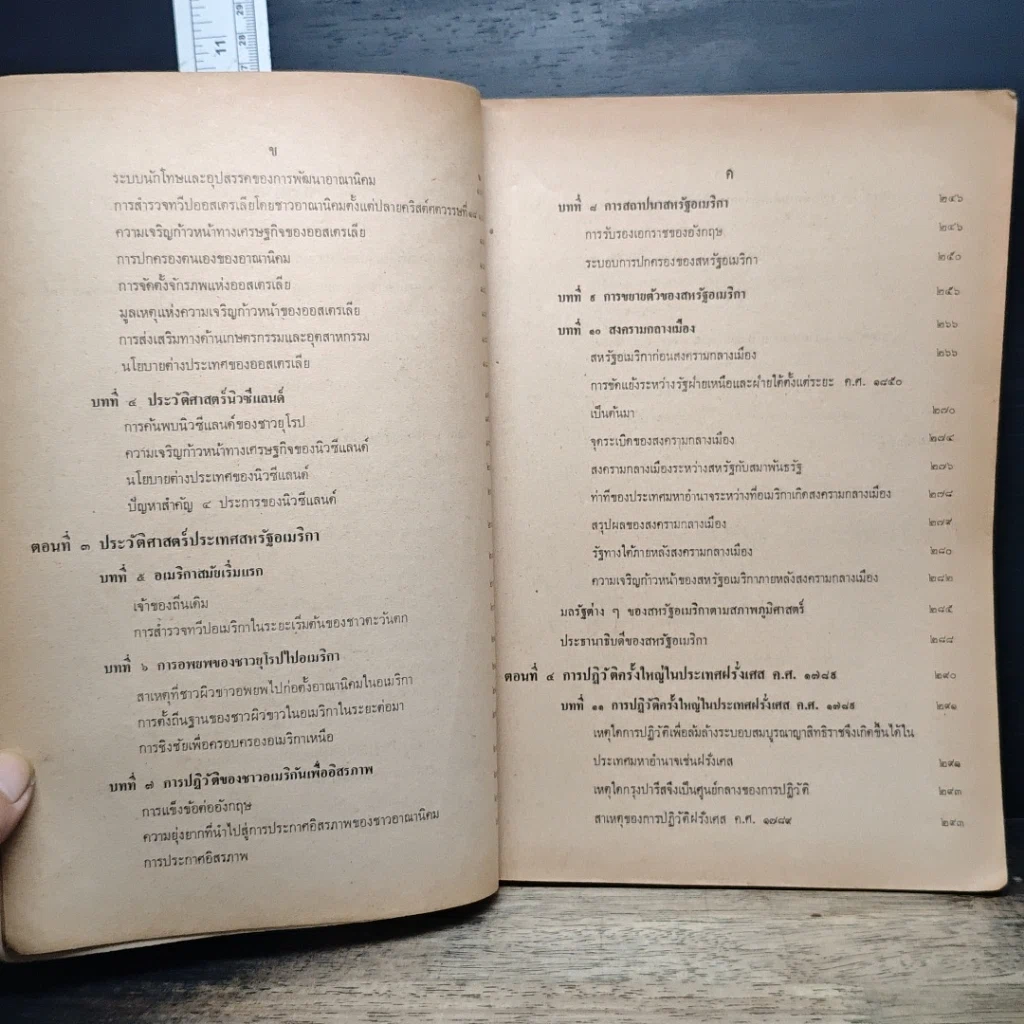 11
29
28
ข
ระบบนักโทษและอุปสรรคของการพัฒนาอาณานิคม
การสำรวจทวีปออสเตรเลียโดยชาวอาณานิคมตั้งแต่ปลายคริสต์ศตวรรษที่ ๑๘
ความเจริญก้าวหน้าทางเศรษฐกิจของออสเตรเลีย
การปกครองตนเองของอาณานิคม
การจัดตั้งจักรภพแห่งออสเตรเลีย
มูลเหตุแห่งความเจริญก้าวหน้าของออสเตรเลีย
การส่งเสริมทางด้านเกษตรกรรมและอุตสาหกรรม
นโยบายต่างประเทศของออสเตรเลีย
บทที่ ๔ ประวัติศาสตร์นิวซีแลนด์
การค้นพบนิวซีแลนด์ของชาวยุโรป
ความเจริญก้าวหน้าทางเศรษฐกิจของนิวซีแลนด์
นโยบายต่างประเทศของนิวซีแลนด์
ปัญหาสำคัญ ๔ ประการของนิวซีแลนด์
ตอนที่ ๓ ประวัติศาสตร์ประเทศสหรัฐอเมริกา
บทที่ ๕ อเมริกาสมัยเริ่มแรก
เจ้าของถิ่นเดิม
การสำรวจทวีปอเมริกาในระยะเริ่มต้นของชาวตะวันตก
บทที่ ๖ การอพยพของชาวยุโรปไปอเมริกา
สาเหตุที่ชาวผิวขาวอพยพไปก่อตั้งอาณานิคมในอเมริกา
การตั้งถิ่นฐานของชาวผิวขาวในอเมริกาในระยะต่อมา
การชิงชัยเพื่อครอบครองอเมริกาเหนือ
บทที่ ๗ การปฏิวัติของชาวอเมริกันเพื่ออิสรภาพ
การแข็งข้อต่ออังกฤษ
ความยุ่งยากที่นำไปสู่การประกาศอิสรภาพของชาวอาณานิคม
การประกาศอิสรภาพ
ค
บทที่ ๘ การสถาปนาสหรัฐอเมริกา ๒๔๖
การรับรองเอกราชของอังกฤษ ๒๔๖
ระบอบการปกครองของสหรัฐอเมริกา ๒๕๐
บทที่ ๙ การขยายตัวของสหรัฐอเมริกา ๒๕๖
บทที่ ๑๐ สงครามกลางเมือง ๒๖๖
สหรัฐอเมริกาก่อนสงครามกลางเมือง ๒๖๖
การขัดแย้งระหว่างรัฐฝ่ายเหนือและฝ่ายใต้ตั้งแต่ระยะ ค.ศ. ๑๘๕๐
เป็นต้นมา ๒๗๐
จุดระเบิดของสงครามกลางเมือง ๒๗๔
สงครามกลางเมืองระหว่างสหรัฐกับสมาพันธรัฐ ๒๗๖
ท่าทีของประเทศมหาอำนาจระหว่างที่อเมริกาเกิดสงครามกลางเมือง ๒๗๘
สรุปผลของสงครามกลางเมือง ๒๗๙
รัฐทางใต้ภายหลังสงครามกลางเมือง ๒๘๐
ความเจริญก้าวหน้าของสหรัฐอเมริกาภายหลังสงครามกลางเมือง ๒๘๒
มลรัฐต่าง ๆ ของสหรัฐอเมริกาตามสภาพภูมิศาสตร์ ๒๘๕
ประธานาธิบดีของสหรัฐอเมริกา ๒๘๘
ตอนที่ ๔ การปฏิวัติครั้งใหญ่ในประเทศฝรั่งเศส ค.ศ. ๑๗๘๙ ๒๙๐
บทที่ ๑๑ การปฏิวัติครั้งใหญ่ในประเทศฝรั่งเศส ค.ศ. ๑๗๘๙ ๒๙๑
เหตุใดการปฏิวัติเพื่อล้มล้างระบอบสมบูรณาญาสิทธิราชจึงเกิดขึ้นได้ใน
ประเทศมหาอำนาจเช่นฝรั่งเศส ๒๙๑
เหตุใดกรุงปารีสจึงเป็นศูนย์กลางของการปฏิวัติ ๒๙๓
สาเหตุของการปฏิวัติฝรั่งเศส ค.ศ. ๑๗๘๙ ๒๙๓